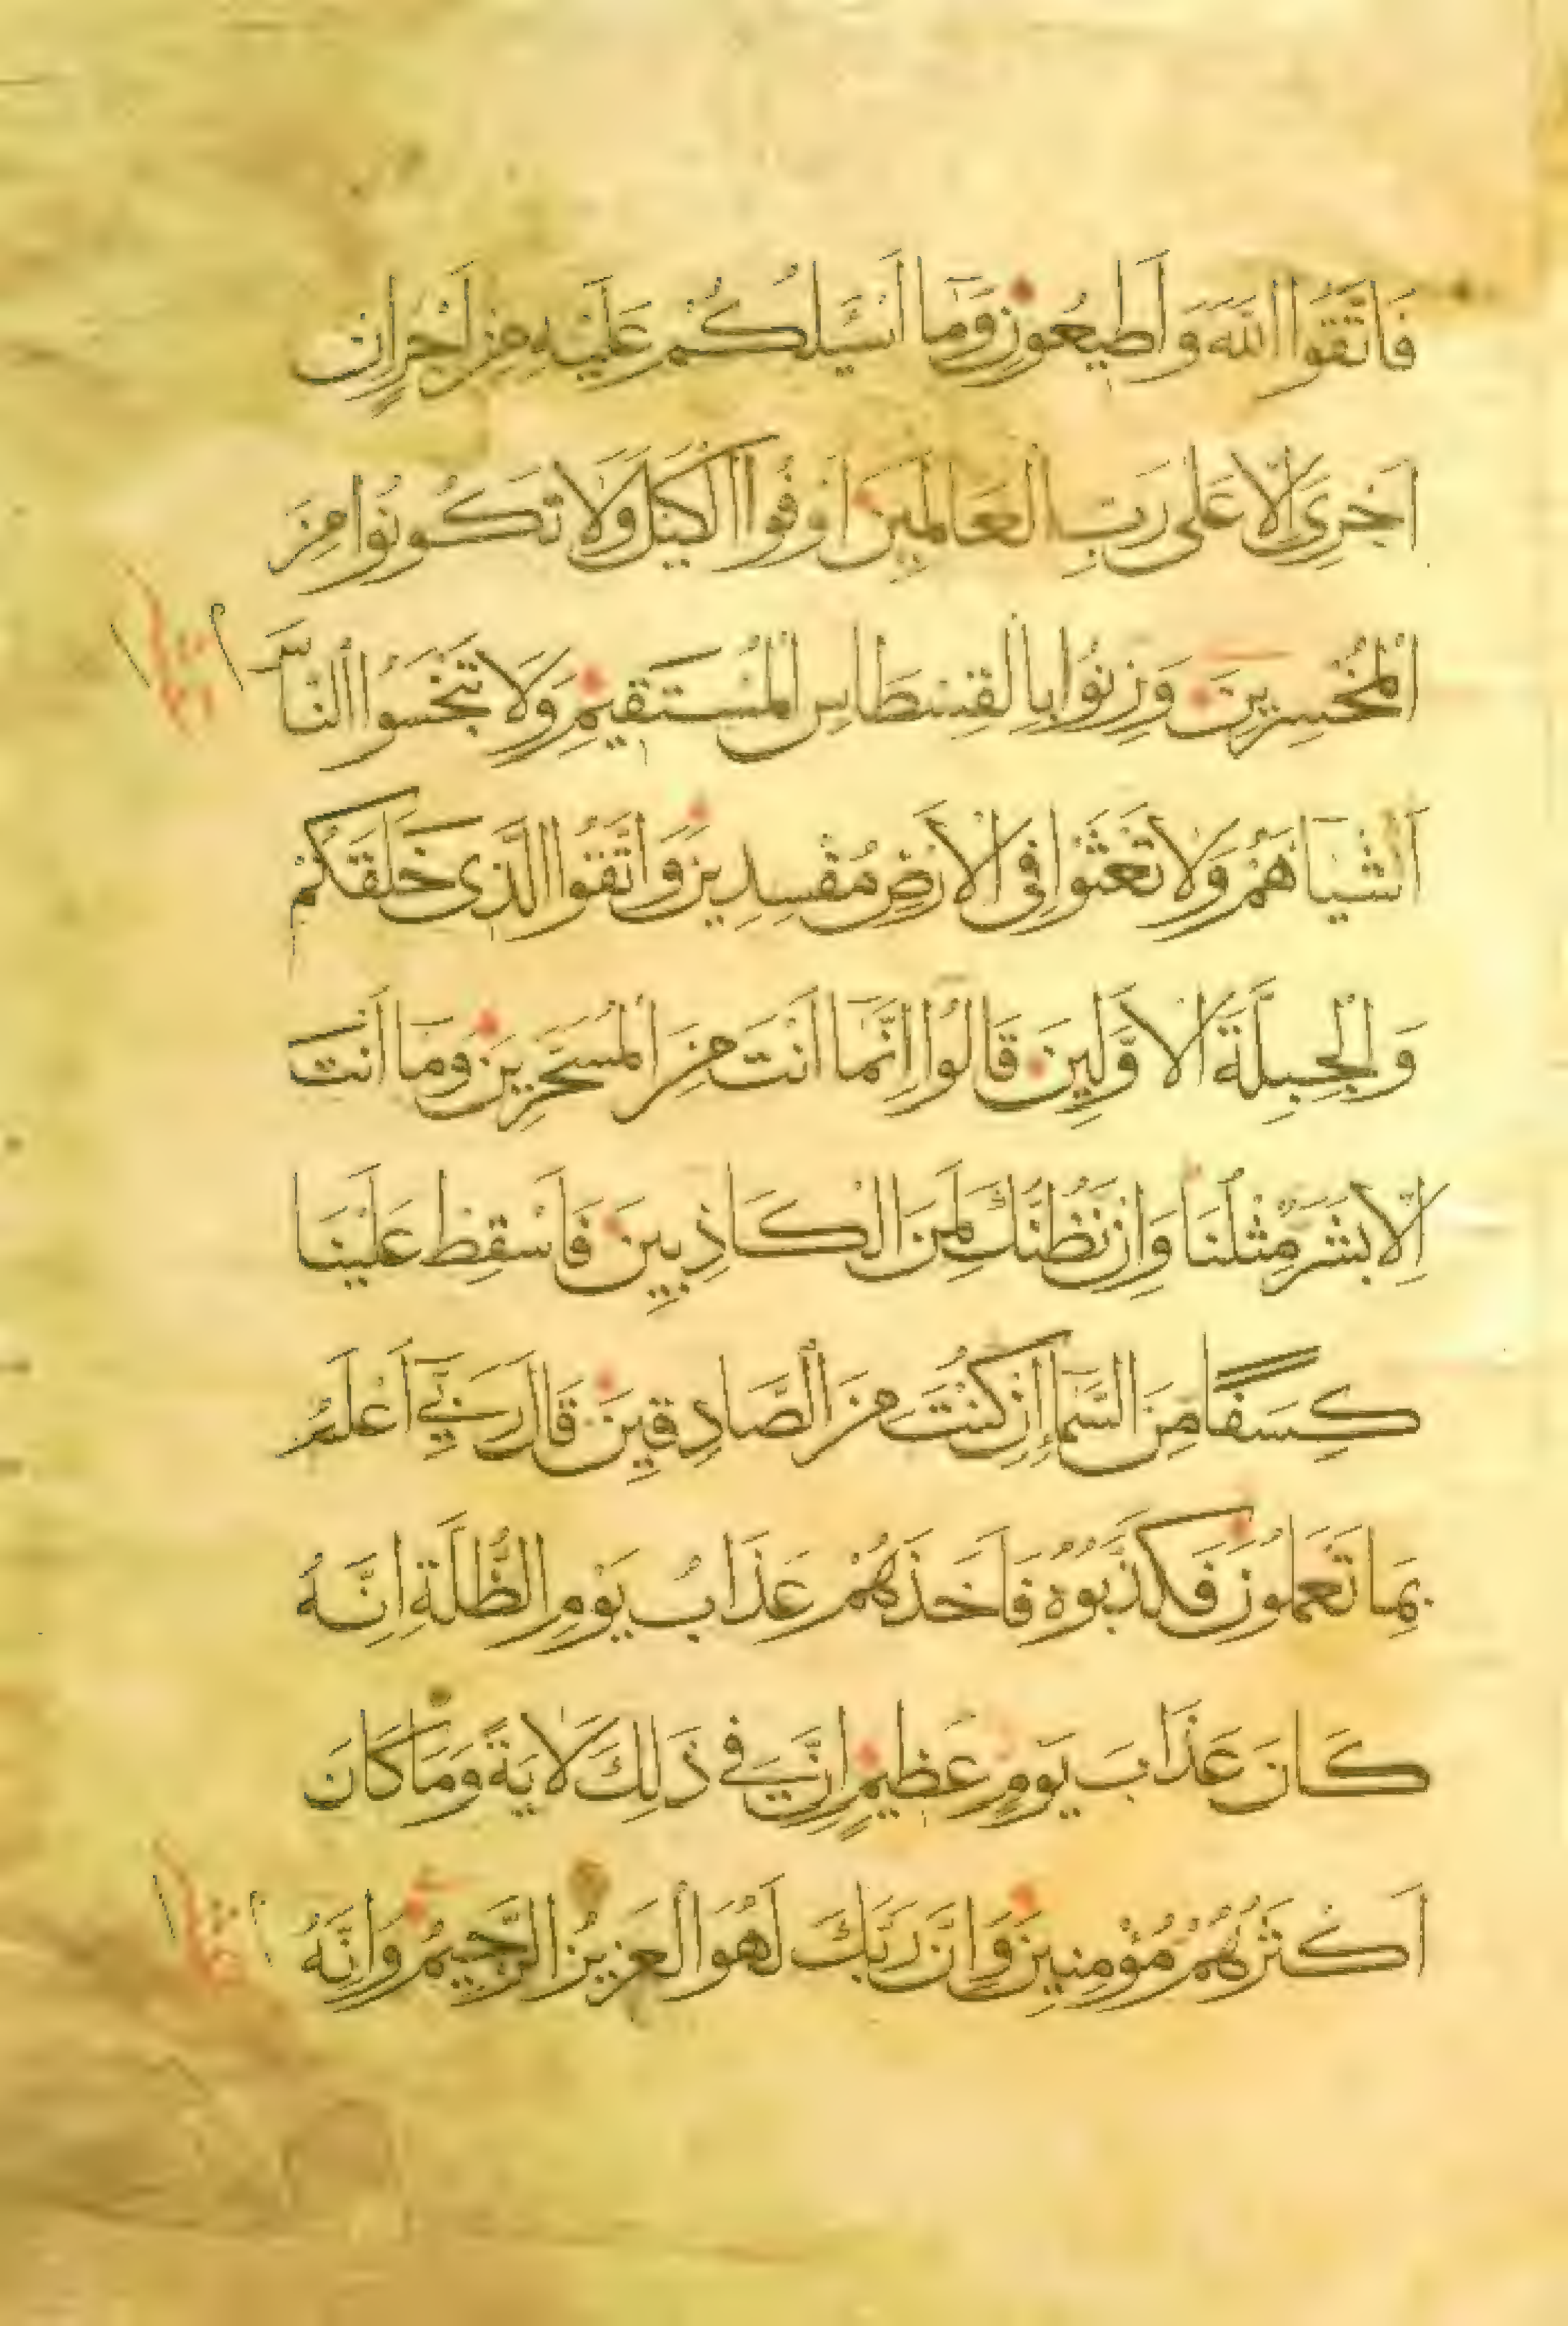 فَاتَّقُوا اللّٰهَ وَاَطِيعُونِ وَمَآ اَسْـَٔلُكُمْ عَلَيْهِ مِنْ اَجْرٍ اِنْ
اَجْرِىَ اِلَّا عَلٰى رَبِّ الْعَالَمِينَ اَوْفُوا الْكَيْلَ وَلَا تَكُونُوا مِنَ
الْمُخْسِرِينَ وَزِنُوا بِالْقِسْطَاسِ الْمُسْتَقِيمِ وَلَا تَبْخَسُوا النَّاسَ
اَشْيَآهُمْ وَلَا تَعْثَوْا فِى الْاَرْضِ مُفْسِدِينَ وَاتَّقُوا الَّذِى خَلَقَكُمْ
وَالْجِبِلَّةَ الْاَوَّلِينَ قَالُوا اِنَّمَا اَنْتَ مِنَ الْمُسَحَّرِينَ وَمَآ اَنْتَ
اِلَّا بَشَرٌ مِثْلُنَا وَاِنْ نَظُنُّكَ لَمِنَ الْكَاذِبِينَ فَاَسْقِطْ عَلَيْنَا
كِسَفًا مِنَ السَّمَآءِ اِنْ كُنْتَ مِنَ الصَّادِقِينَ قَالَ رَبِّىٓ اَعْلَمُ
بِمَا تَعْمَلُونَ فَكَذَّبُوهُ فَاَخَذَهُمْ عَذَابُ يَوْمِ الظُّلَّةِ اِنَّهُ
كَانَ عَذَابَ يَوْمٍ عَظِيمٍ اِنَّ فِى ذَلِكَ لَاٰيَةً وَمَا كَانَ
اَكْثَرُهُمْ مُؤْمِنِينَ وَاِنَّ رَبَّكَ لَهُوَ الْعَزِيزُ الرَّحِيمُ وَاِنَّهُ